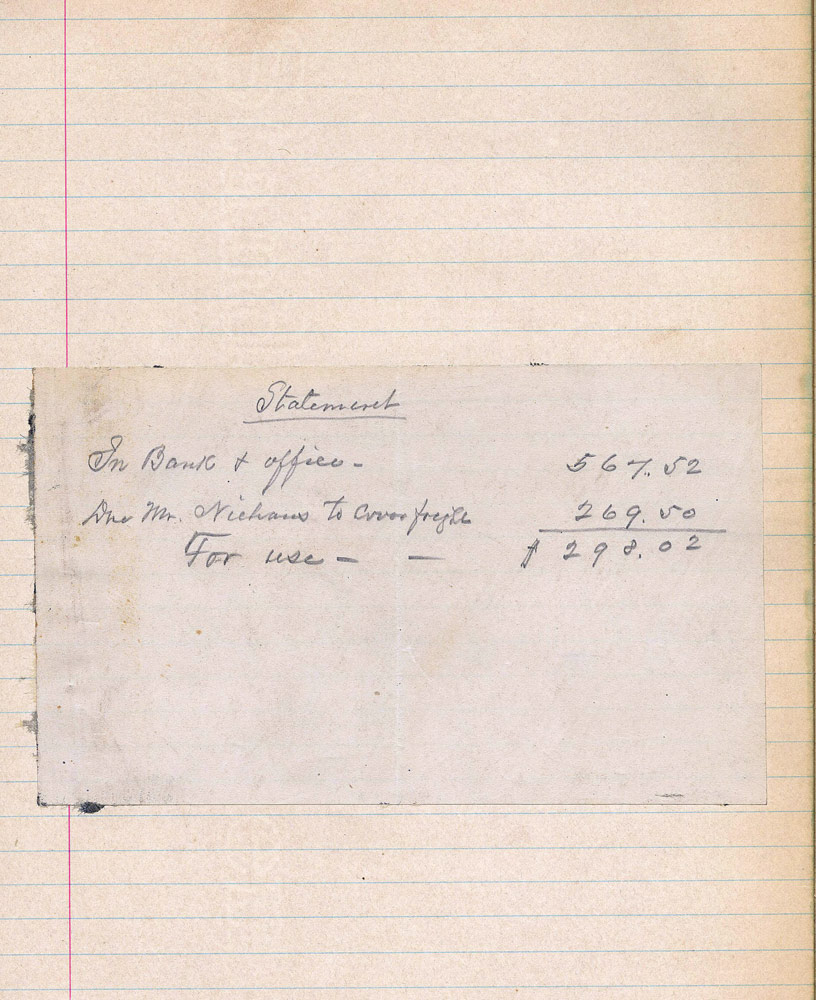 Statement
In Bank & office - 567.52
Due Mr. Niehaus to cover freight 269.50
For use - - $ 298.02